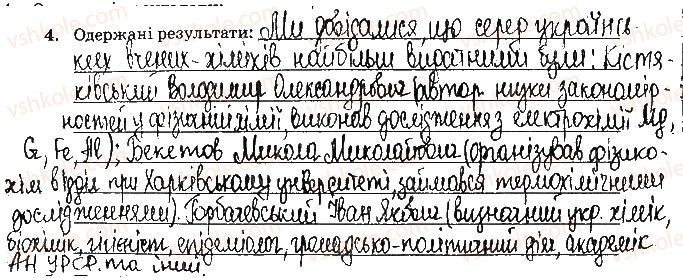 4. Одержані результати: Ми довідалися, що серед українсь-
ких вчених-хіміків найбільш видатними були: Кістя-
ківський Володимир Олександрович (автор низки закономір-
ностей у фізичній хімії, виконав дослідження з електрохімії Mg,
Cr, Fe, Al); Бекетов Микола Миколайович (організував фізико-
хім відділ при Харківському університеті, займався термохімічними
дослідженнями). Горбачевський Іван Якович (визначний укр. хімік,
біохімік, гігієніст, епідеміолог, громадсько-політичний діяч, академік
АН УРСР. та інші.